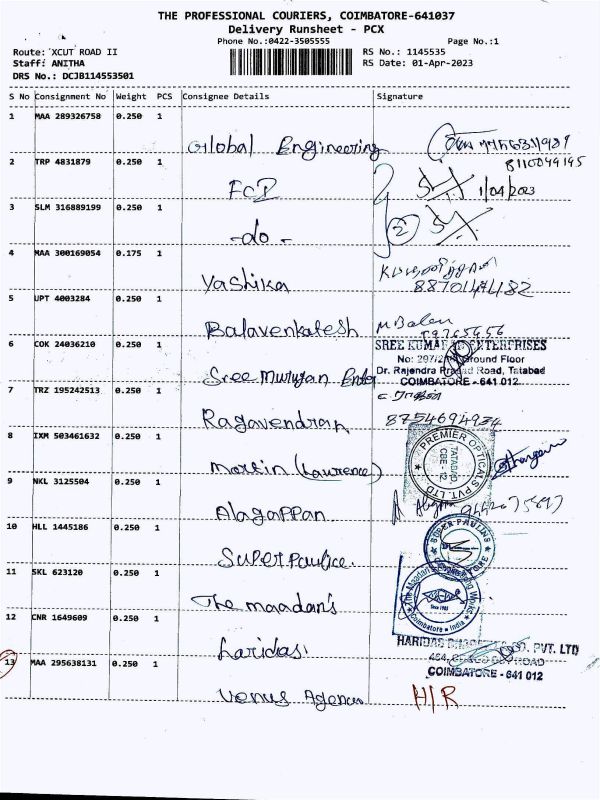 THE PROFESSIONAL COURIERS, COIMBATORE-641037
Delivery Runsheet - PCX
Phone No.:0422-3505555 Page No.:1
Route: XCUT ROAD II RS No.: 1145535
Staff: ANITHA RS Date: 01-Apr-2023
DRS No.: DCJB114553501
S No Consignment No Weight PCS Consignee Details Signature
1 MAA 289326758 0.250 1
Global Engineering
8110049145
2 TRP 4831879 0.250 1
FCI 1/04/2023
3 SLM 316889199 0.250 1
-do- 2
4 MAA 300169054 0.175 1
Yashika
5 UPT 4003284 0.250 1
Balavenkatesh M Balan
6 COK 24036210 0.250 1
SREE KUMARAN ENTERPRISES
No: 297/ Ground Floor
Dr. Rajendra Prasad Road, Tatabad
COIMBATORE - 641 012
Sree Murugan Enter
7 TRZ 195242513 0.250 1
Ragavendran 8754694934
8 IXM 503461632 0.250 1
Martin (Lawrence)
PREMIER OPTICALS PVT. LTD
TATABAD,
CBE - 12.
9 NKL 3125504 0.250 1
Alagappan
10 HLL 1445186 0.250 1
Super Paulice.
SUPER PAULINS
11 SKL 623120 0.250 1
The maadan's
The Maadan's Engineering Works
Since 1985
Coimbatore India
12 CNR 1649609 0.250 1
Haridas
HARIDAS CO. PVT. LTD
ROAD
COIMBATORE - 641 012
13 MAA 295638131 0.250 1
Venus Agencies H/R